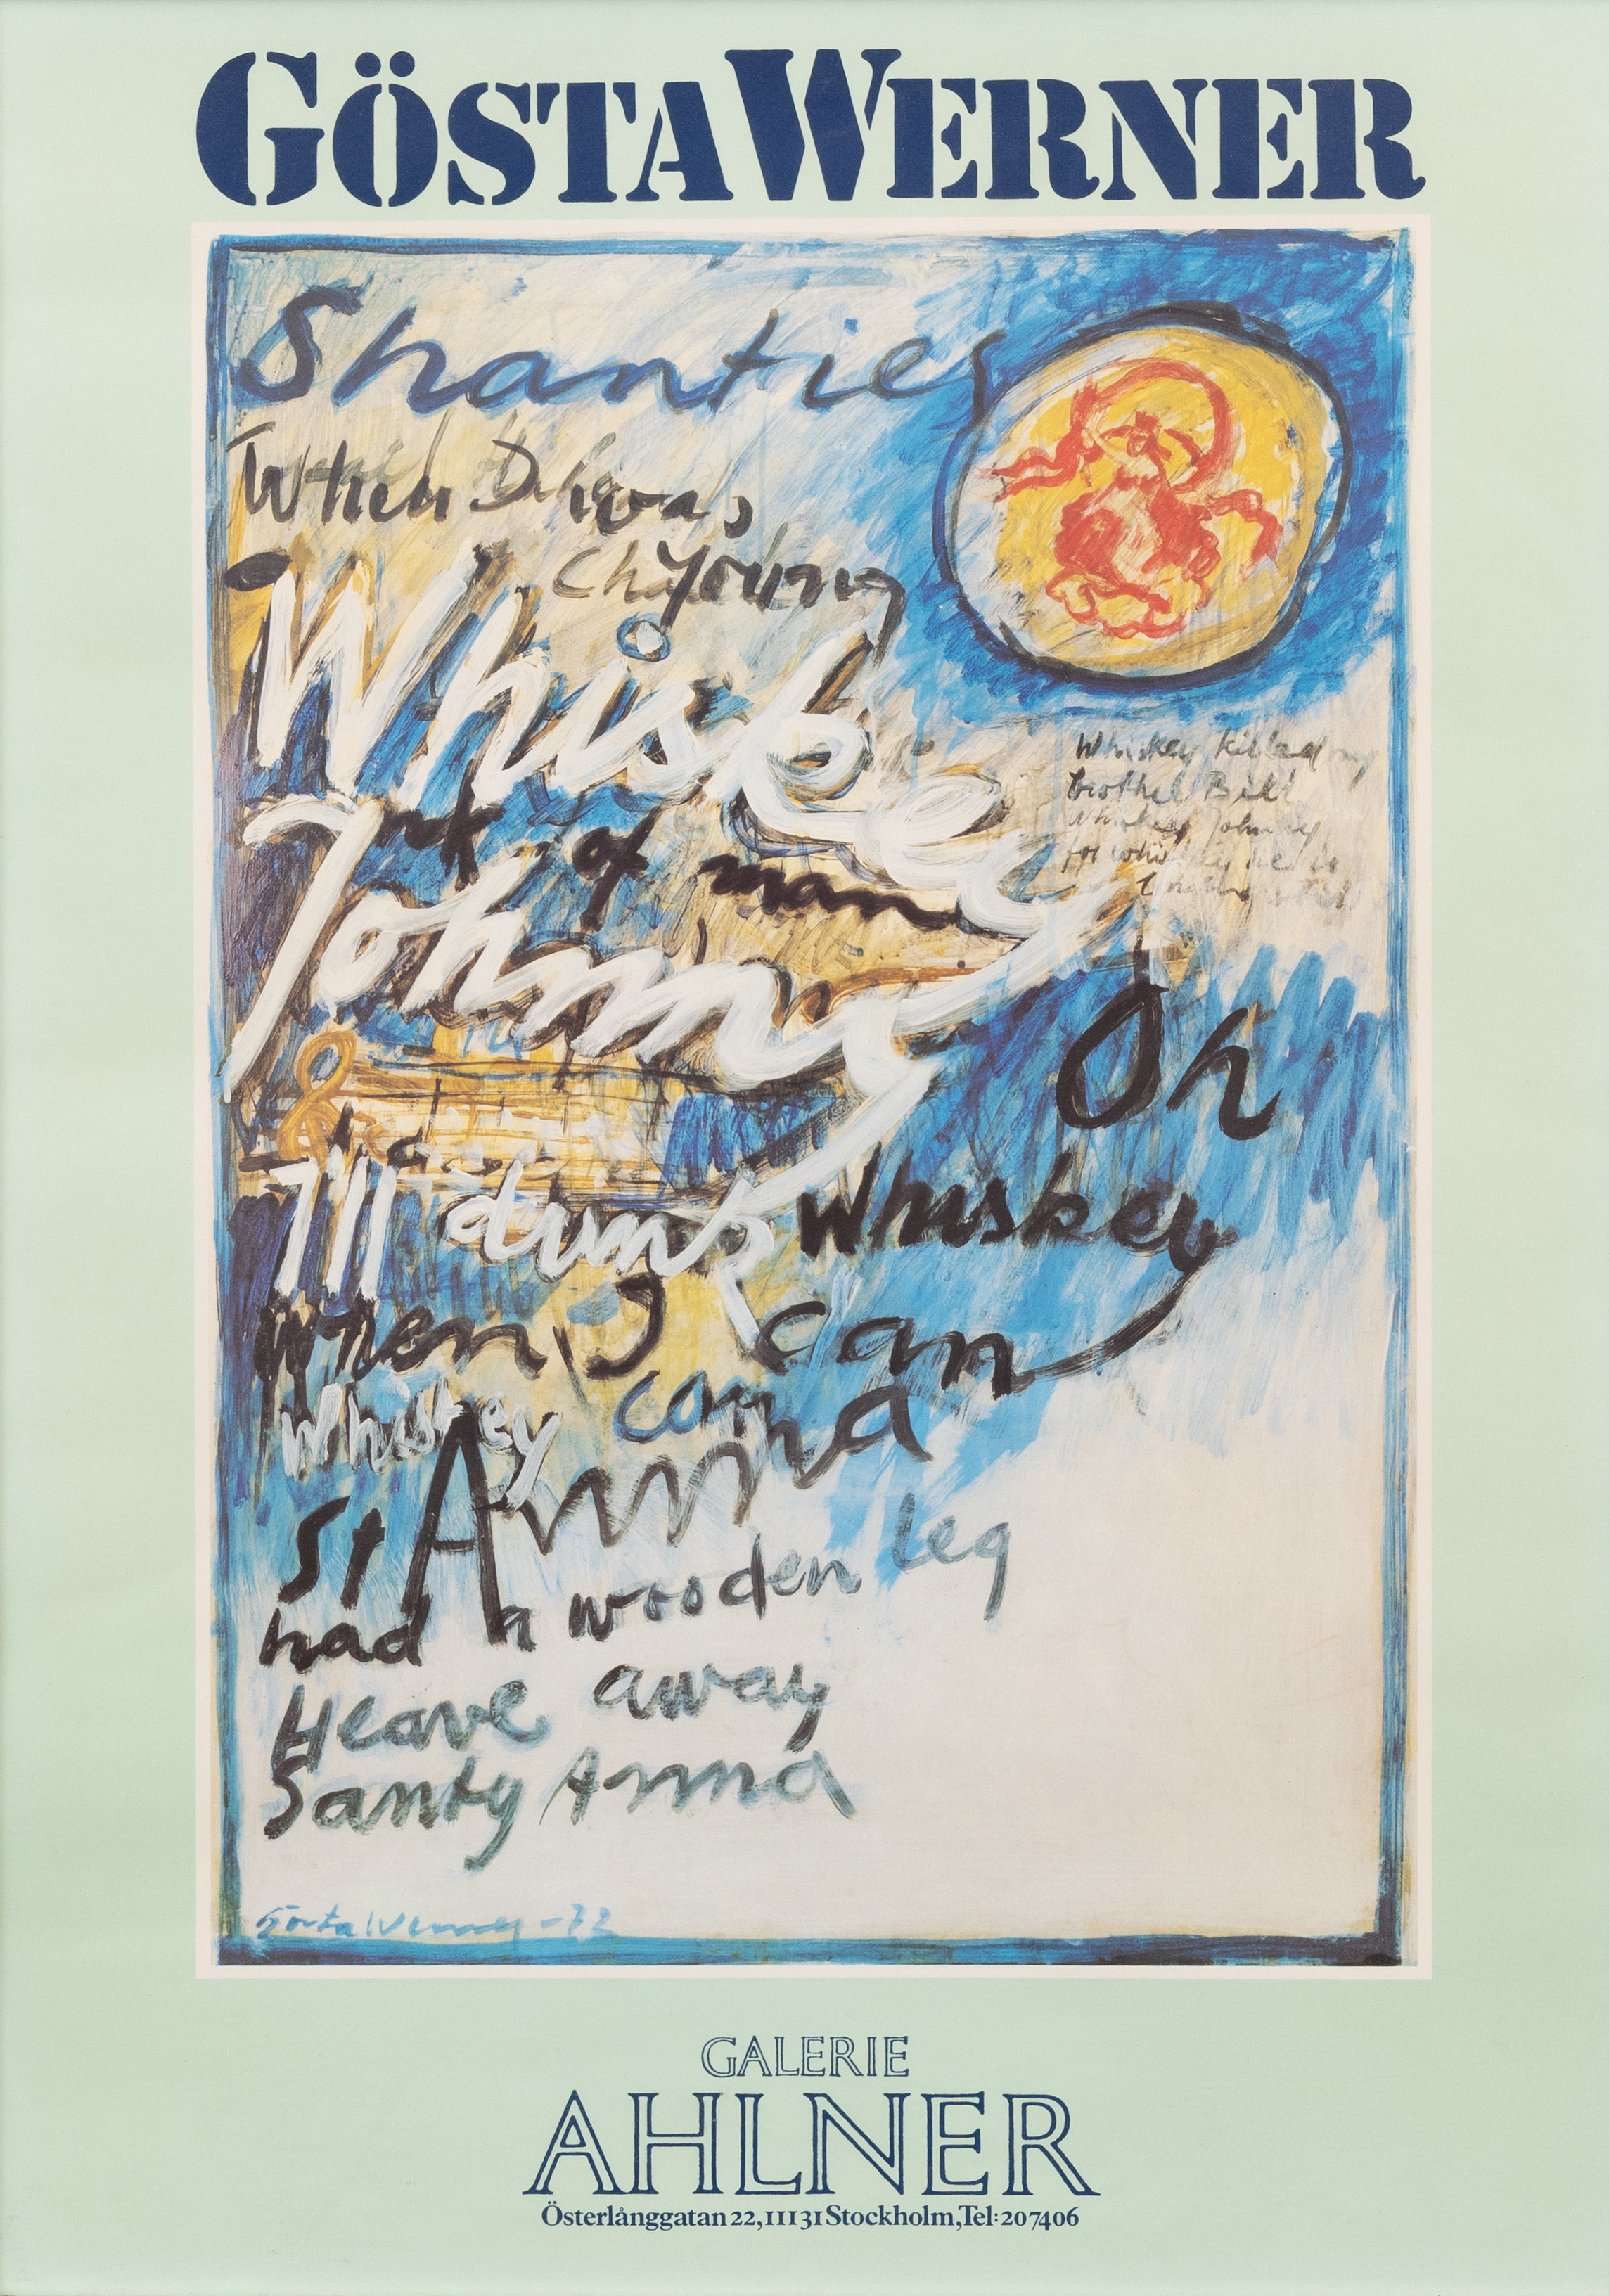 GÖSTA WERNER
Shanties
When I was
young
Whiskey
of man
Johnny
Whiskey killed my
brother Bill
Whiskey Johnny
Oh
I'll drink Whiskey
when I can
Whiskey can
St Anna
had a wooden leg
Heave away
Santy Anna
Gösta Werner -72
GALERIE
AHLNER
Österlånggatan 22, 11131 Stockholm, Tel: 207406